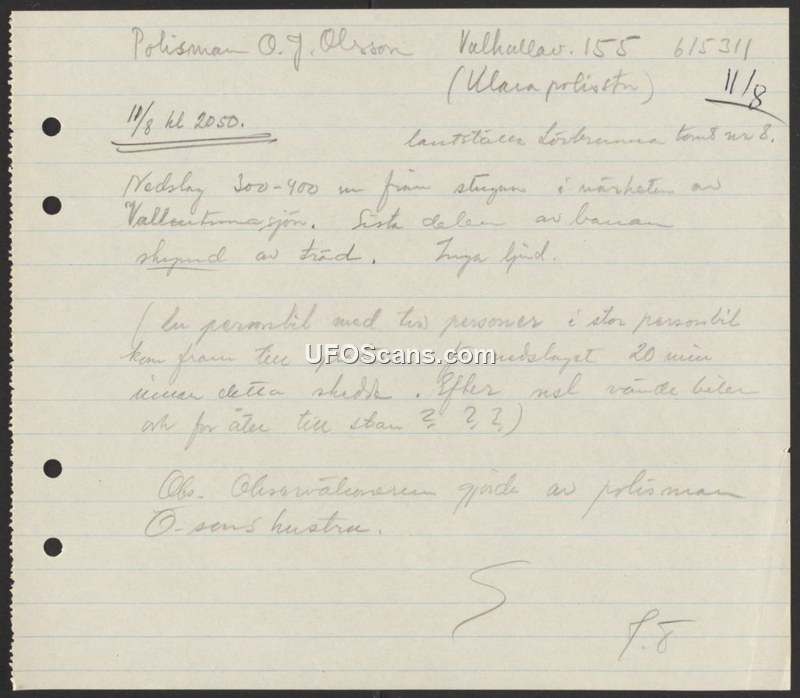 Polisman O. J. Olsson Valhallav. 155 615311
(Klara polisstn) 11/8
11/8 kl 2050.
lantställe Lövbrunna tomt nr 8.
Nedslag 300-400 m från stugan i närheten av
Vallentunasjön. Sista delen av banan
skymd av träd. Inga ljud.
(En personbil med två personer i stor personbil
kom fram till nedslaget 20 min
innan detta skedde. Efter nsl vände bilen
och for åter till stan ? ? ?)
UFOScans.com
Obs. Observationen gjorde av polisman
O-sons hustru.